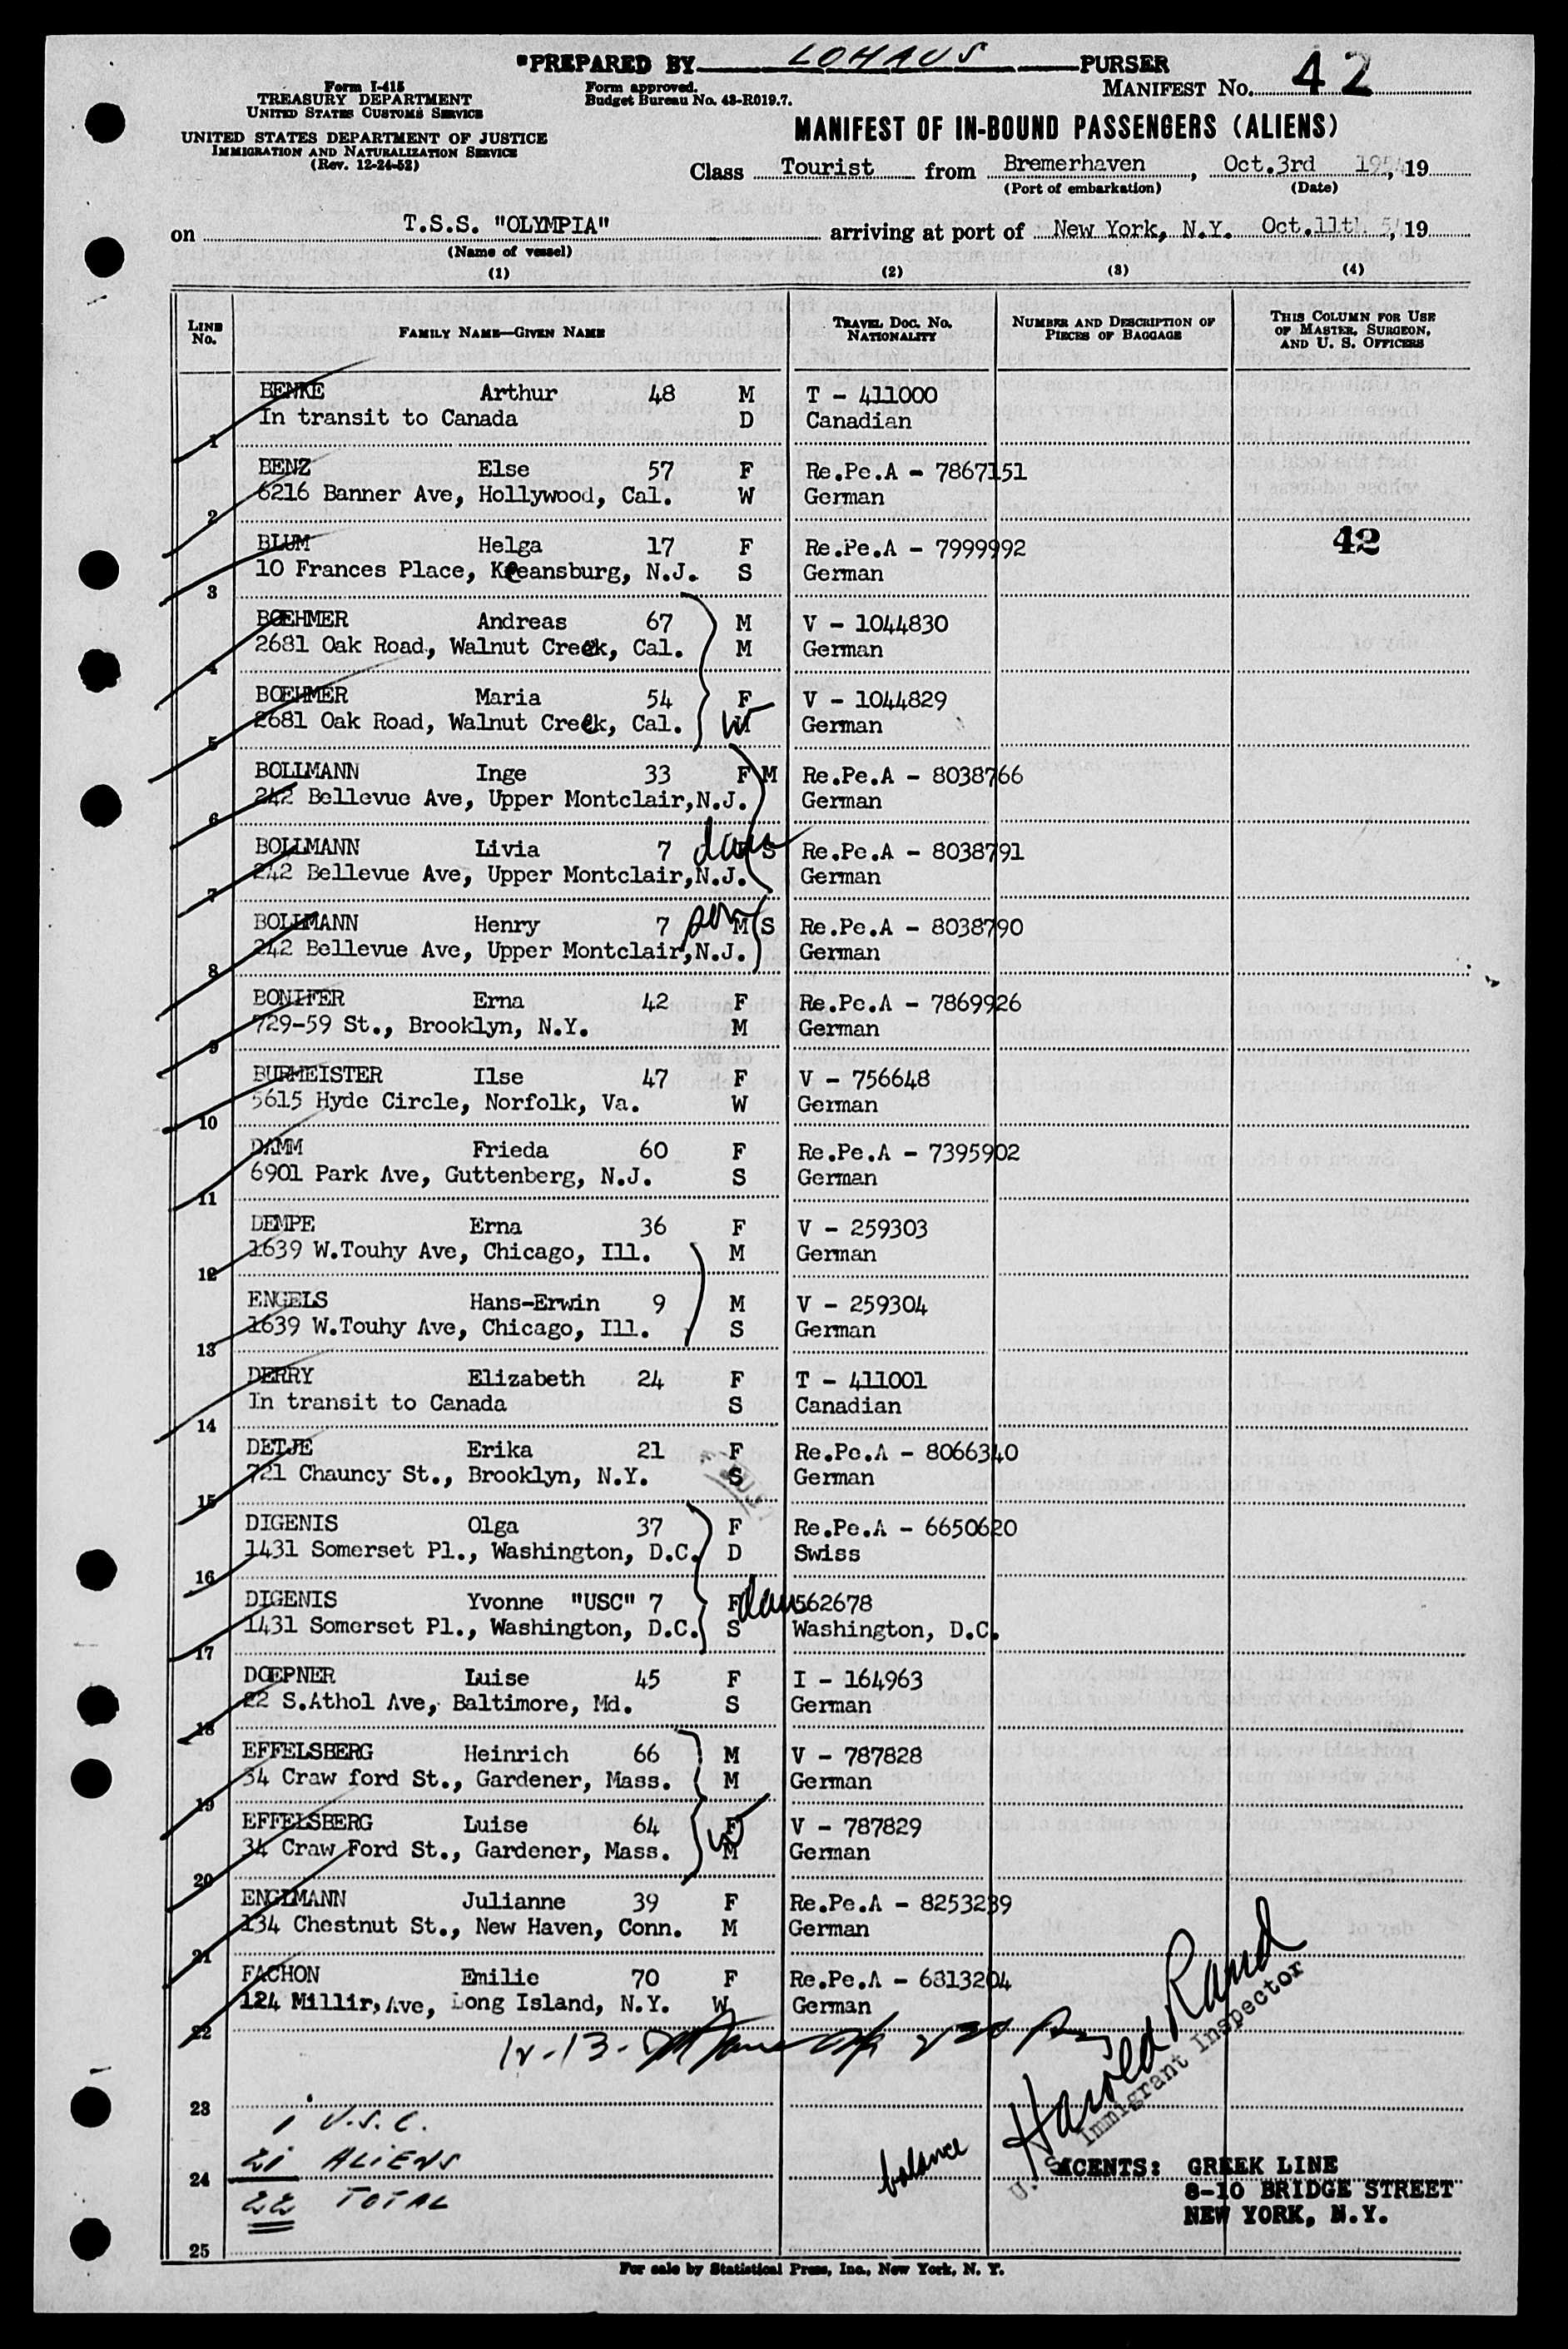 *PREPARED BY LOHAUS PURSER
Form I-415
TREASURY DEPARTMENT
UNITED STATES CUSTOMS SERVICE
Form approved.
Budget Bureau No. 43-R019.7.
MANIFEST No. 42
UNITED STATES DEPARTMENT OF JUSTICE
IMMIGRATION AND NATURALIZATION SERVICE
(Rev. 12-24-52)
MANIFEST OF IN-BOUND PASSENGERS (ALIENS)
Class Tourist from Bremerhaven, Oct.3rd 1954, 19
(Port of embarkation) (Date)
on T.S.S. "OLYMPIA" arriving at port of New York, N.Y. Oct.11th 54, 19
(Name of vessel)
(1) (2) (3) (4)
LINE No. FAMILY NAME—GIVEN NAME TRAVEL DOC. NO. NATIONALITY NUMBER AND DESCRIPTION OF PIECES OF BAGGAGE THIS COLUMN FOR USE OF MASTER, SURGEON, AND U. S. OFFICERS
BENKE Arthur 48 M T - 411000
1 In transit to Canada D Canadian
BENZ Else 57 F Re.Pe.A - 7867151
2 6216 Banner Ave, Hollywood, Cal. W German
BLUM Helga 17 F Re.Pe.A - 7999992 42
3 10 Frances Place, Keeansburg, N.J. S German
BOEHMER Andreas 67 M V - 1044830
4 2681 Oak Road, Walnut Creek, Cal. M German
BOEHMER Maria 54 F V - 1044829
5 2681 Oak Road, Walnut Creek, Cal. W German
BOLLMANN Inge 33 F M Re.Pe.A - 8038766
6 242 Bellevue Ave, Upper Montclair, N.J. German
BOLLMANN Livia 7 dau S Re.Pe.A - 8038791
7 242 Bellevue Ave, Upper Montclair, N.J. German
BOLLMANN Henry 7 son M S Re.Pe.A - 8038790
8 242 Bellevue Ave, Upper Montclair, N.J. German
BONIFER Erna 42 F Re.Pe.A - 7869926
9 729-59 St., Brooklyn, N.Y. M German
BURMEISTER Ilse 47 F V - 756648
10 5615 Hyde Circle, Norfolk, Va. W German
DAMM Frieda 60 F Re.Pe.A - 7395902
11 6901 Park Ave, Guttenberg, N.J. S German
DEMPE Erna 36 F V - 259303
12 1639 W.Touhy Ave, Chicago, Ill. M German
ENGELS Hans-Erwin 9 M V - 259304
13 1639 W.Touhy Ave, Chicago, Ill. S German
DERRY Elizabeth 24 F T - 411001
14 In transit to Canada S Canadian
DETJE Erika 21 F Re.Pe.A - 8066340
15 721 Chauncy St., Brooklyn, N.Y. S German
DIGENIS Olga 37 F Re.Pe.A - 6650620
16 1431 Somerset Pl., Washington, D.C. D Swiss
DIGENIS Yvonne "USC" 7 F dau 562678
17 1431 Somerset Pl., Washington, D.C. S Washington, D.C.
DOEPNER Luise 45 F I - 164963
18 22 S.Athol Ave, Baltimore, Md. S German
EFFELSBERG Heinrich 66 M V - 787828
19 34 Craw ford St., Gardener, Mass. M German
EFFELSBERG Luise 64 F W V - 787829
20 34 Craw Ford St., Gardener, Mass. M German
ENGLMANN Julianne 39 F Re.Pe.A - 8253289
21 134 Chestnut St., New Haven, Conn. M German
FACHON Emilie 70 F Re.Pe.A - 6813204
22 124 Millir, Ave, Long Island, N.Y. W German
23
1 U.S.C.
21 ALIENS
24
22 TOTAL
25
balance
Harold Rand
U. S. Immigrant Inspector
AGENTS: GREEK LINE
8-10 BRIDGE STREET
NEW YORK, N.Y.
For sale by Statistical Press, Inc., New York, N. Y.